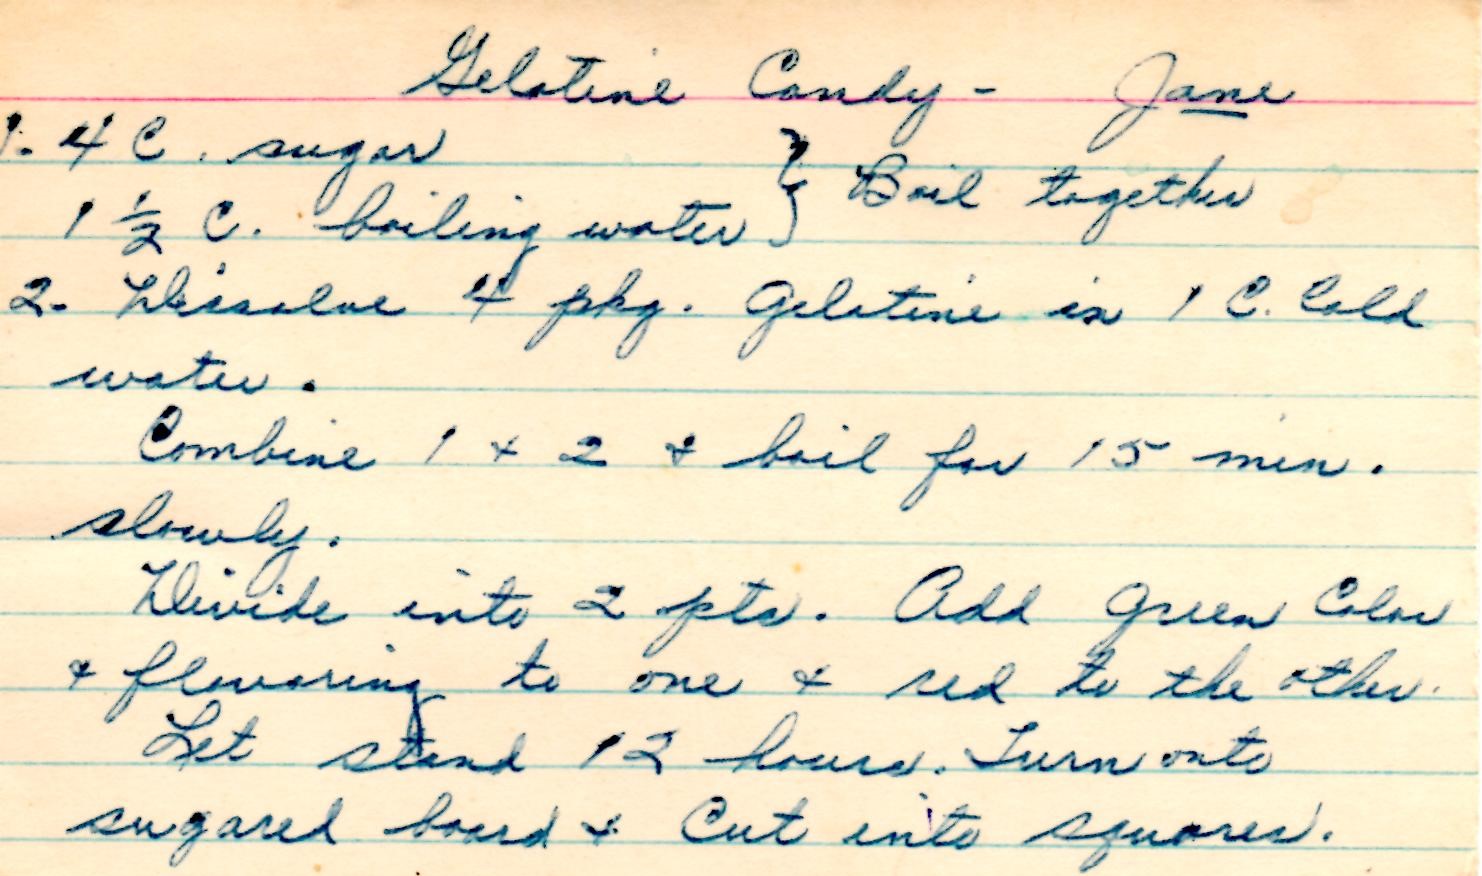 Gelatine Candy - Jane
1. 4 C. sugar
1 1/2 C. boiling water } Boil together
2. Dissolve 4 pkg. Gelatine in 1 C. Cold
water.
Combine 1 & 2 & boil for 15 min.
slowly.
Divide into 2 pts. Add green Color
& flavoring to one & red to the other.
Let stand 12 hours. Turn onto
sugared board & Cut into squares.